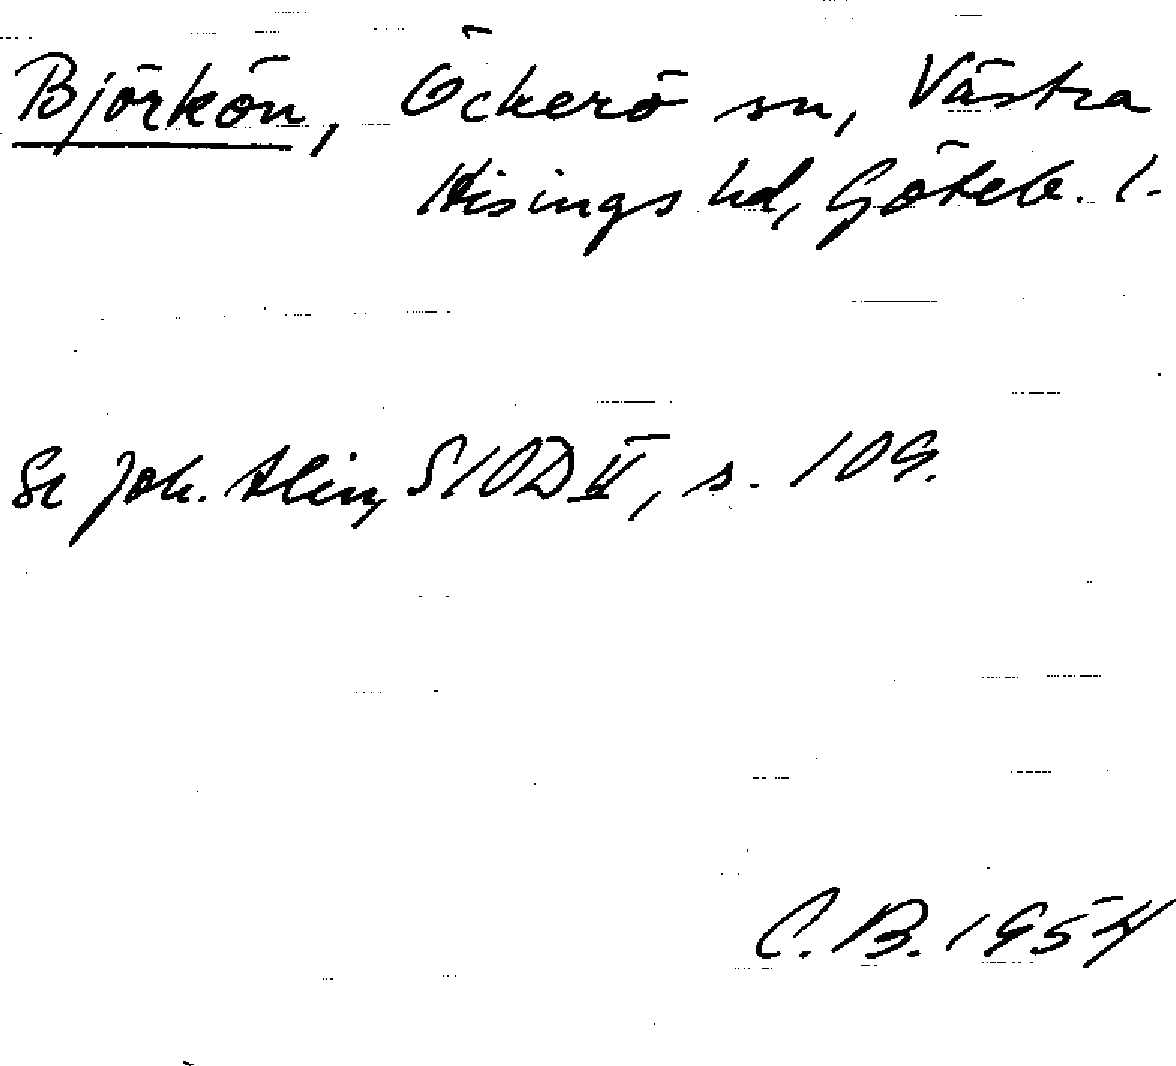 Björkön, Öckerö sn, Västra
Hisings hd, Göteb. l.
Se Joh. Alin, SIOD II, s. 109.
C. B. 1954